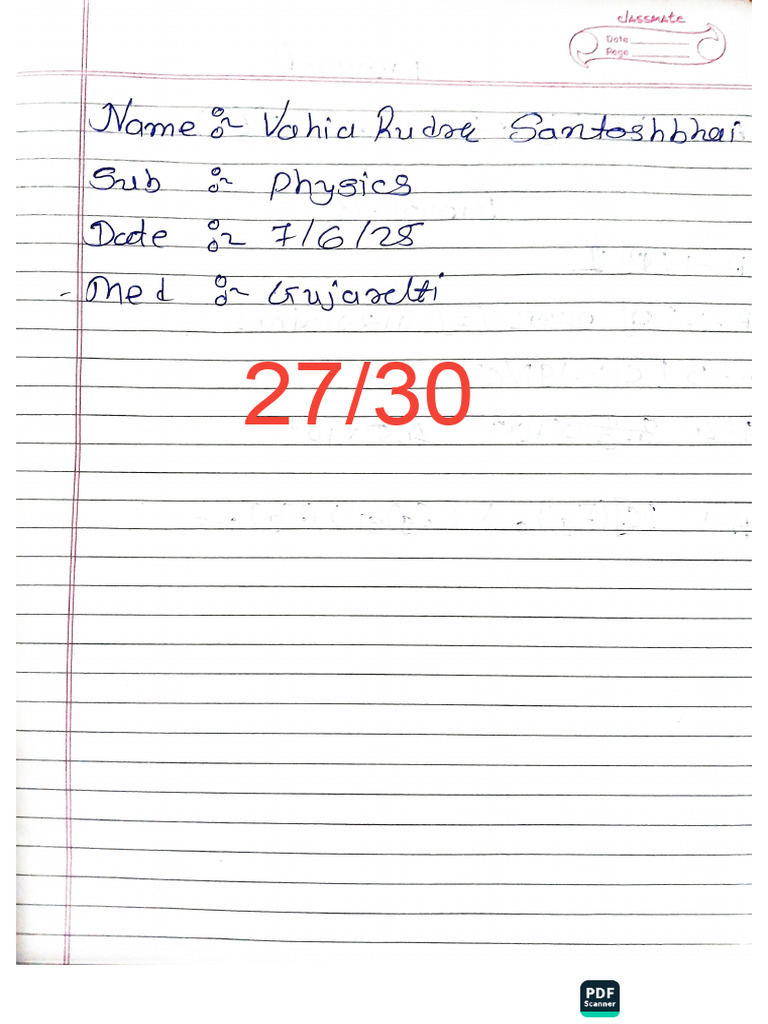 classmate
Date
Page
Name :- Vahia Rudra Santoshbhai
Sub :- Physics
Date :- 7/6/25
Med :- Gujarati
27/30
PDF
Scanner